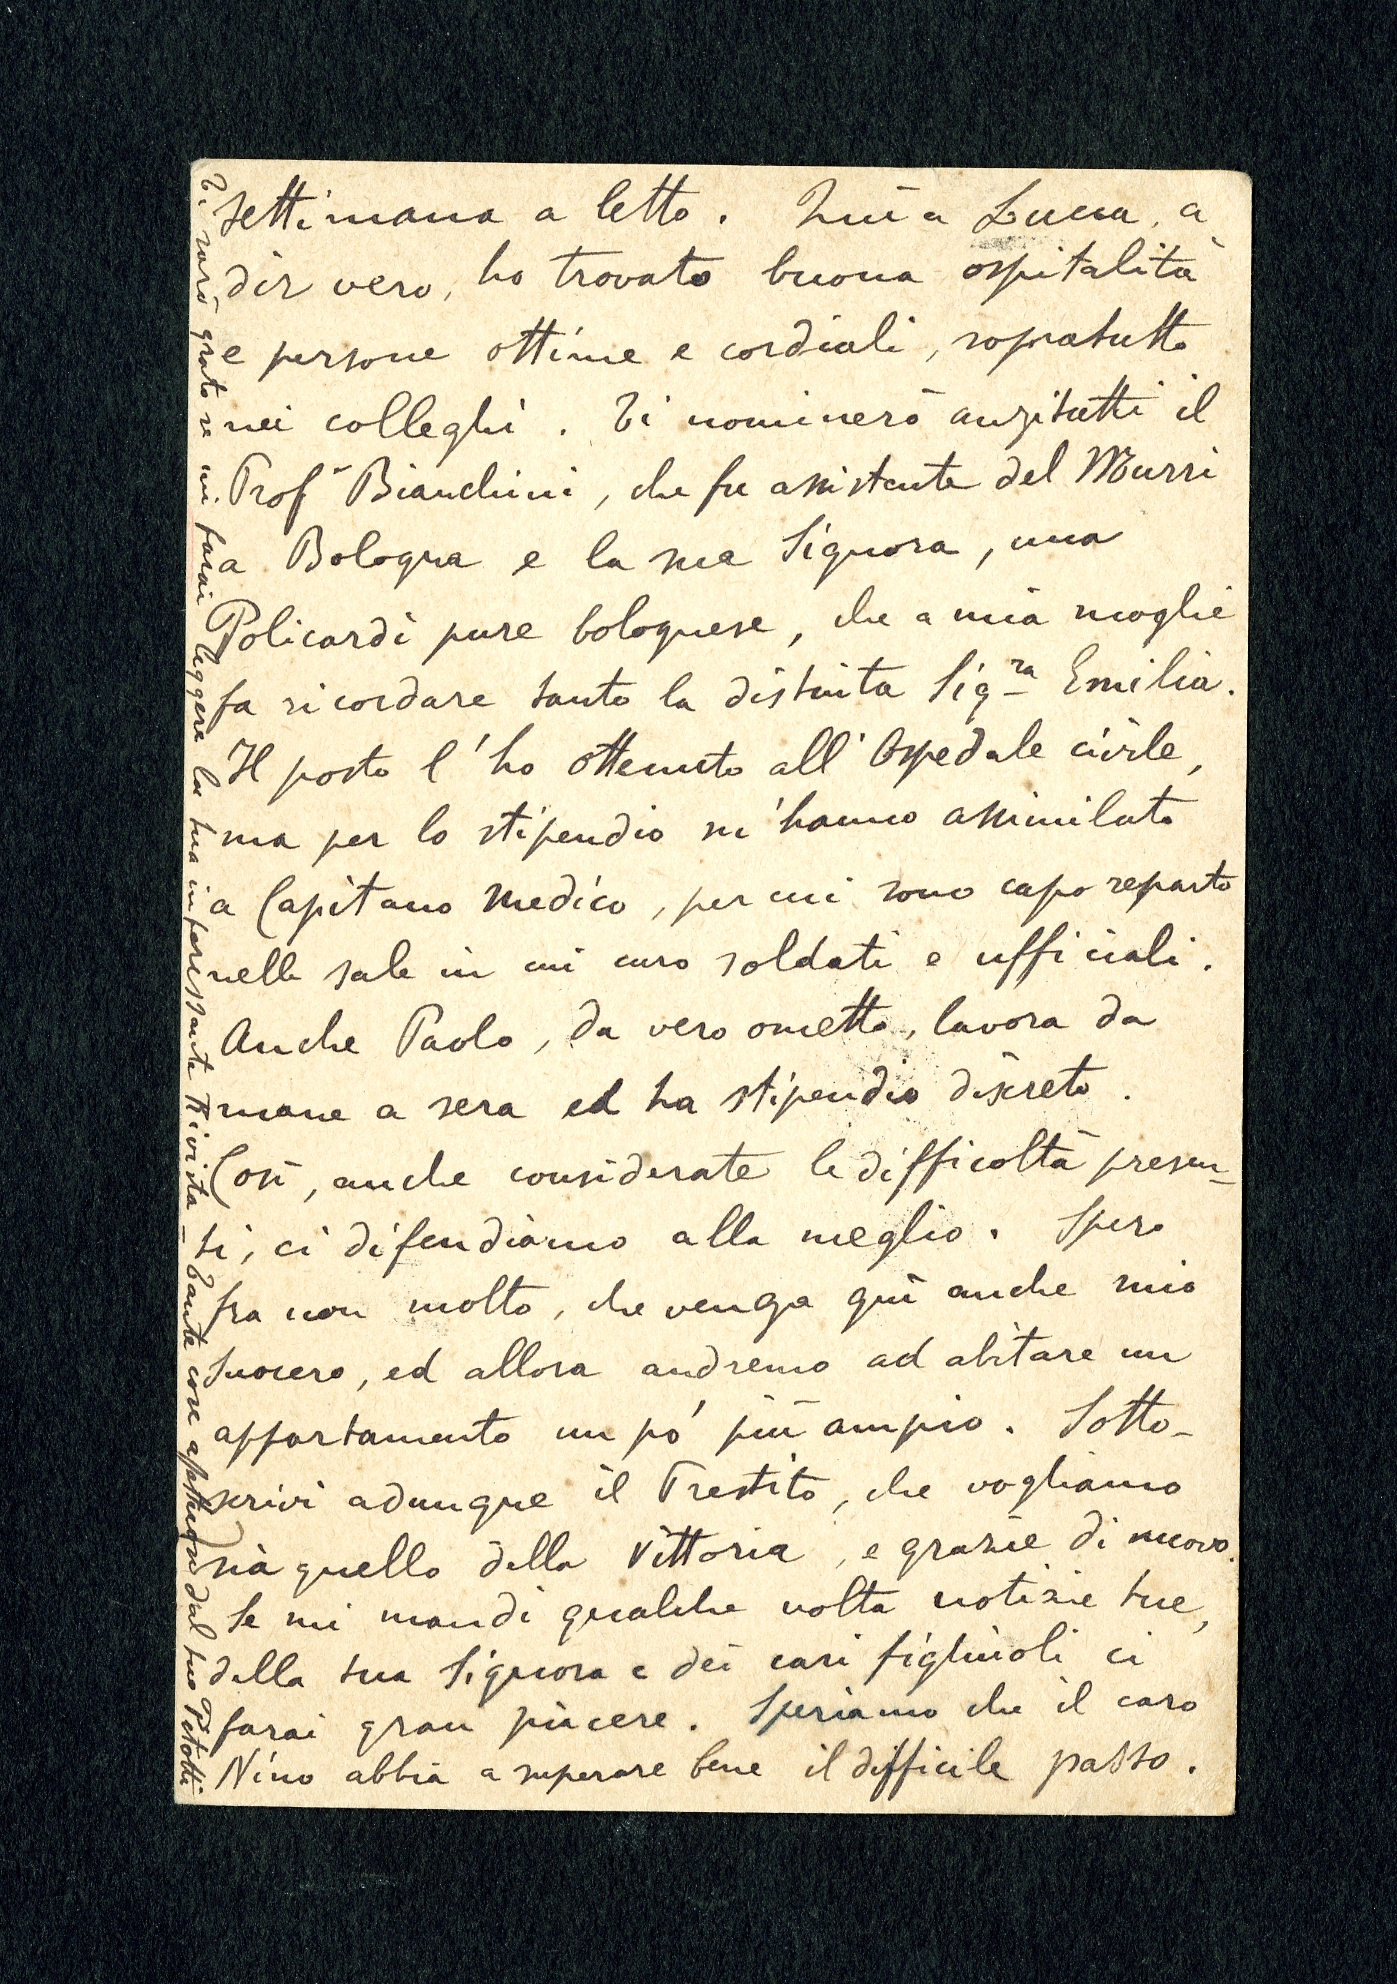 settimana a letto. Quì a Lucca, a
dir vero, ho trovato buona ospitalità
e persone ottime e cordiali, sopratutto
nei colleghi. Ti nominerò anzitutti il
Profʳ Bianchini, che fu assistente del Murri
a Bologna e la sua Signora, una
Policardi pure bolognese, che a mia moglie
fa ricordare tanto la distinta Sigʳᵃ Emilia.
Il posto l'ho ottenuto all'Ospedale civile,
ma per lo stipendio m'hanno assimilato
a Capitano medico, per cui sono capo reparto
nelle sale in cui curo soldati e ufficiali.
Anche Paolo, da vero ometto, lavora da
mane a sera ed ha stipendio discreto.
Così, anche considerate le difficoltà presen-
ti, ci difendiamo alla meglio. Spero
fra non molto, che venga quì anche mio
Suocero, ed allora andremo ad abitare un
appartamento un pó più ampio. Sotto-
scrivi adunque il Prestito, che vogliamo
sia quello della Vittoria, e grazie di nuovo.
Se mi mandi qualche volta notizie tue,
della tua Signora e dei cari figliuoli ci
farai gran piacere. Speriamo che il caro
Nino abbia a superare bene il difficile passo.
Ti sarò grato se mi farai leggere la tua interessante Rivista - Tante cose affettuose dal tuo Pitotti